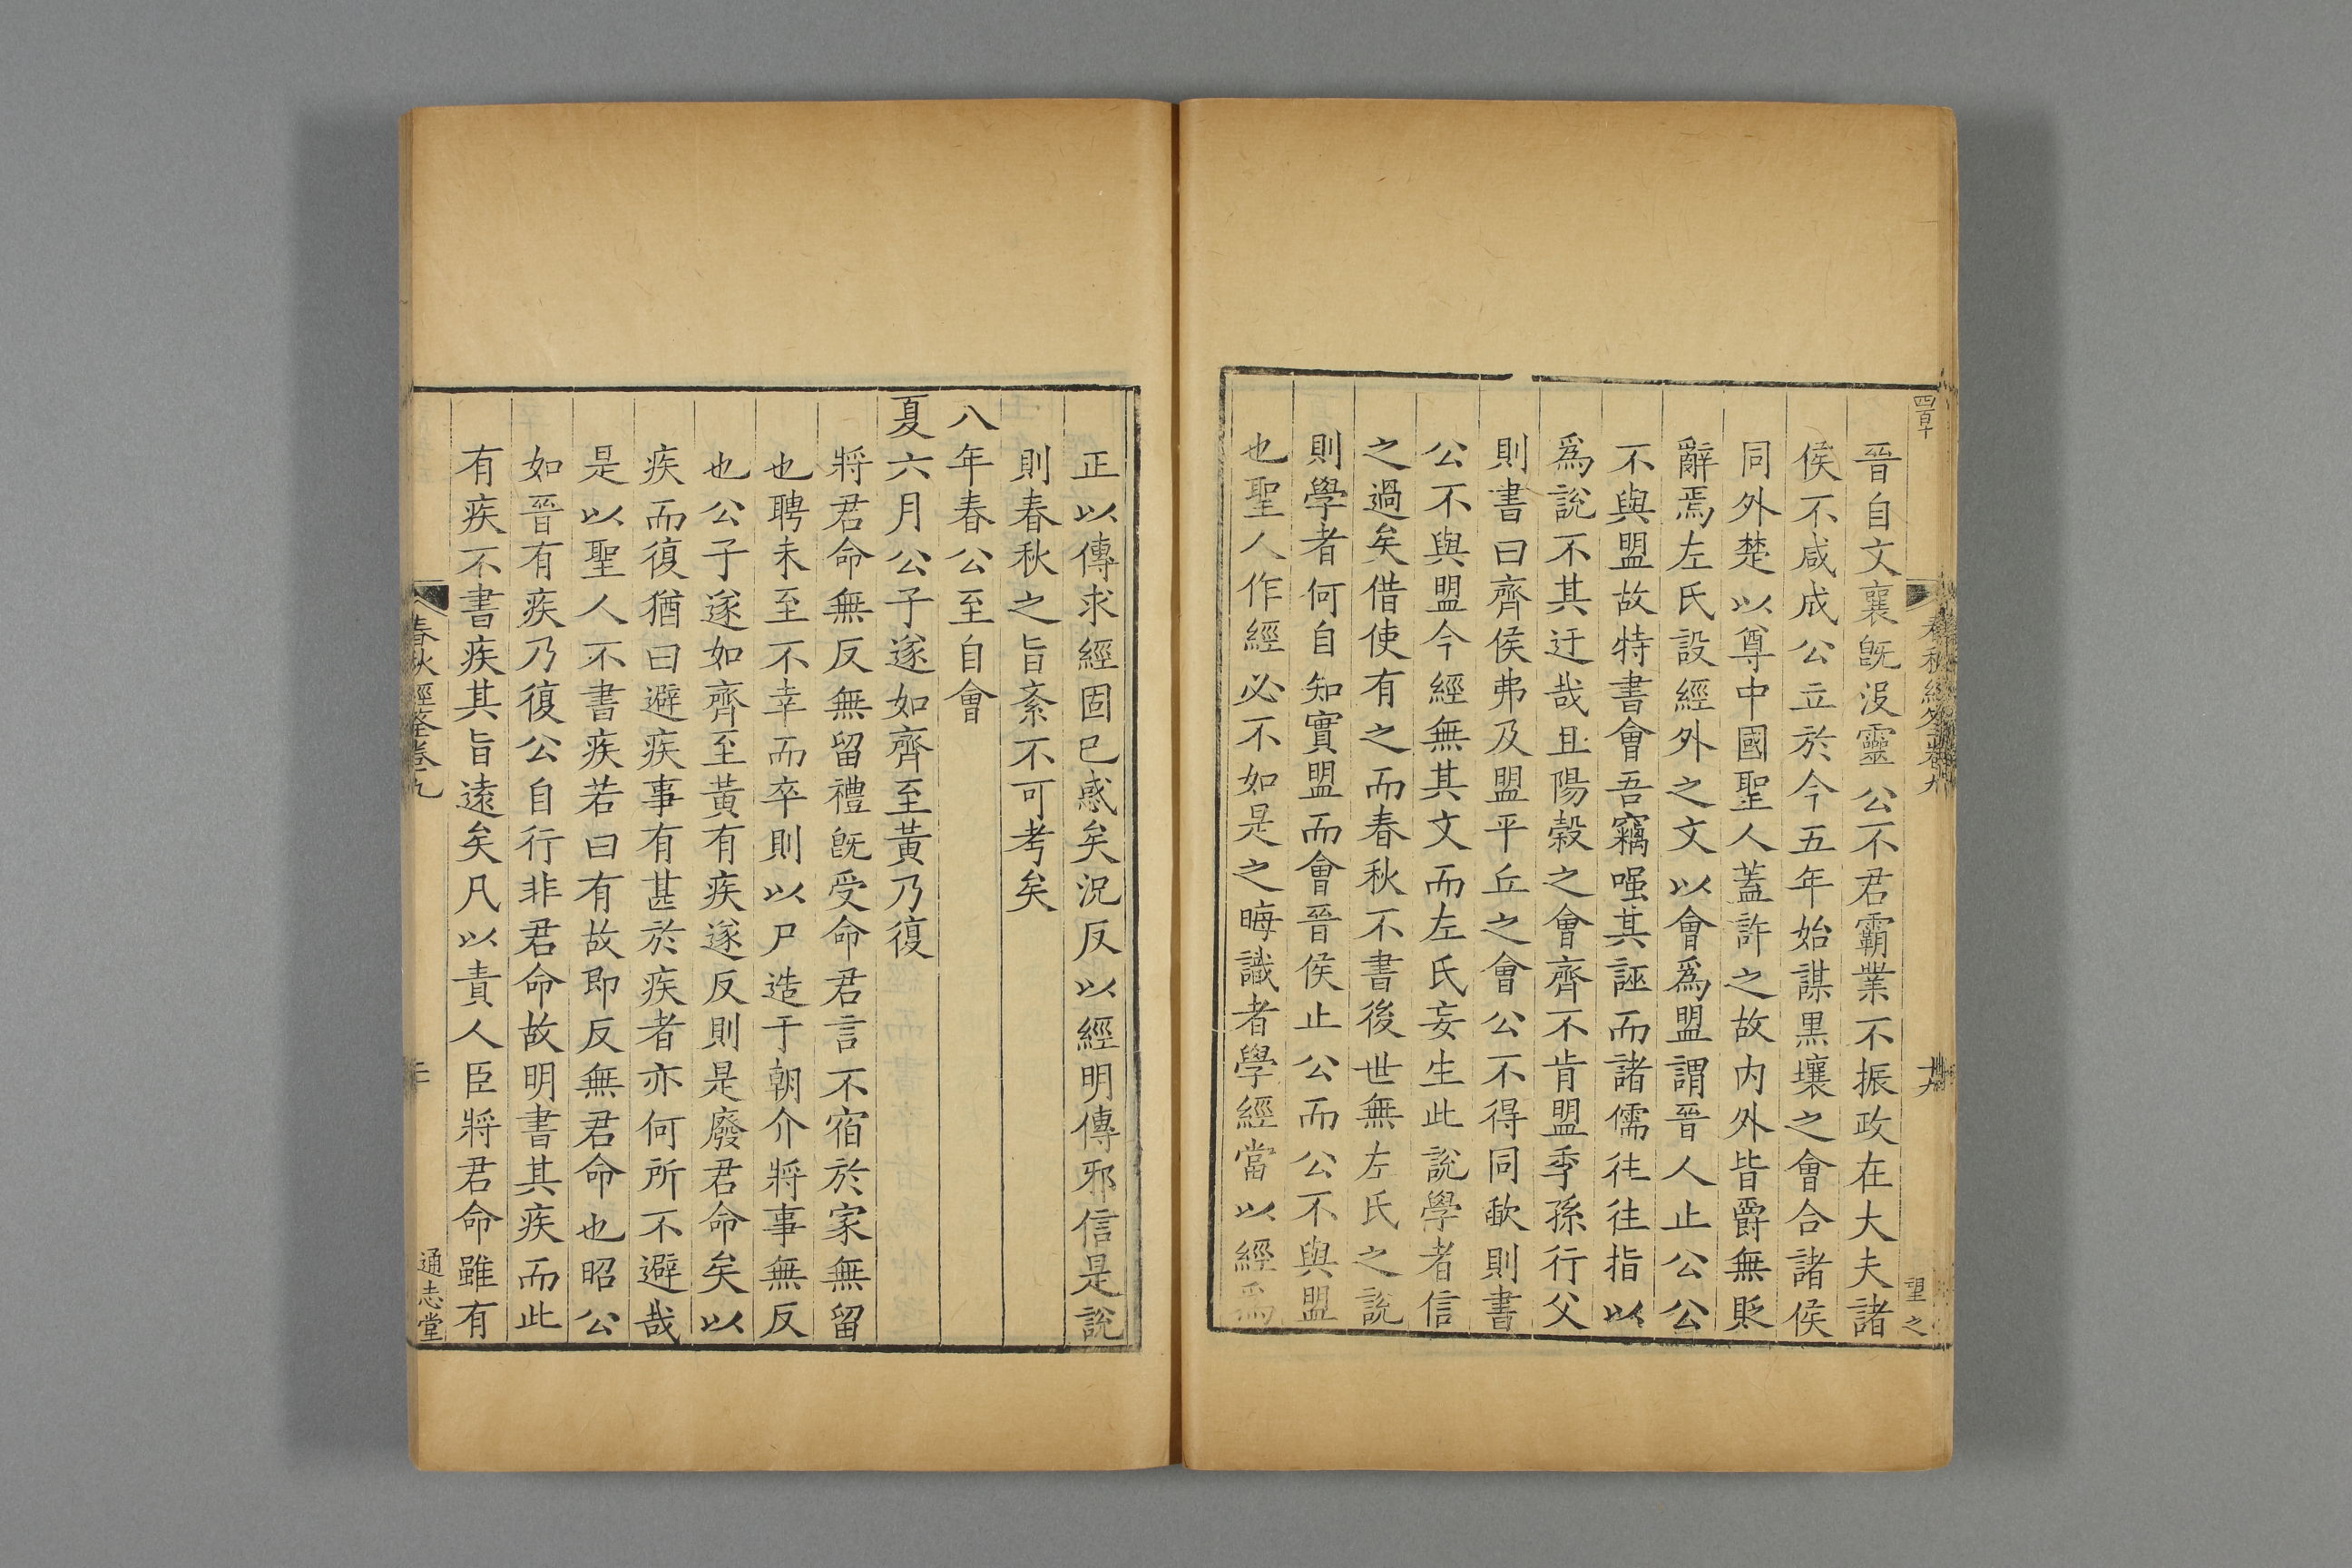 四百十
春秋經筌卷九
十九
望之
晉自文襄旣沒靈公不君霸業不振政在大夫諸
侯不咸成公立於今五年始謀黒壤之會合諸侯
同外楚以尊中國聖人蓋許之故内外皆爵無貶
辭焉左氏設經外之文以會爲盟謂晉人止公公
不與盟故特書會吾竊嗤其誣而諸儒徃徃指以
爲說不其迂哉且陽榖之會齊不肯盟季孫行父
則書曰齊侯弗及盟平丘之會公不得同歃則書
公不與盟今經無其文而左氏妄生此說學者信
之過矣借使有之而春秋不書後世無左氏之說
則學者何自知實盟而會晉侯止公而公不與盟
也聖人作經必不如是之晦識者學經當以經爲
正以傳求經固已惑矣況反以經明傳邪信是說
則春秋之旨紊不可考矣
八年春公至自會
夏六月公子遂如齊至黃乃復
將君命無反無留禮旣受命君言不宿於家無留
也聘未至不幸而卒則以尸造于朝介將事無反
也公子遂如齊至黃有疾遂反則是廢君命矣以
疾而復猶曰避疾事有甚於疾者亦何所不避哉
是以聖人不書疾若曰有故即反無君命也昭公
如晉有疾乃復公自行非君命故明書其疾而此
有疾不書疾其旨遠矣凡以責人臣將君命雖有
春秋經筌卷九
二十
通志堂